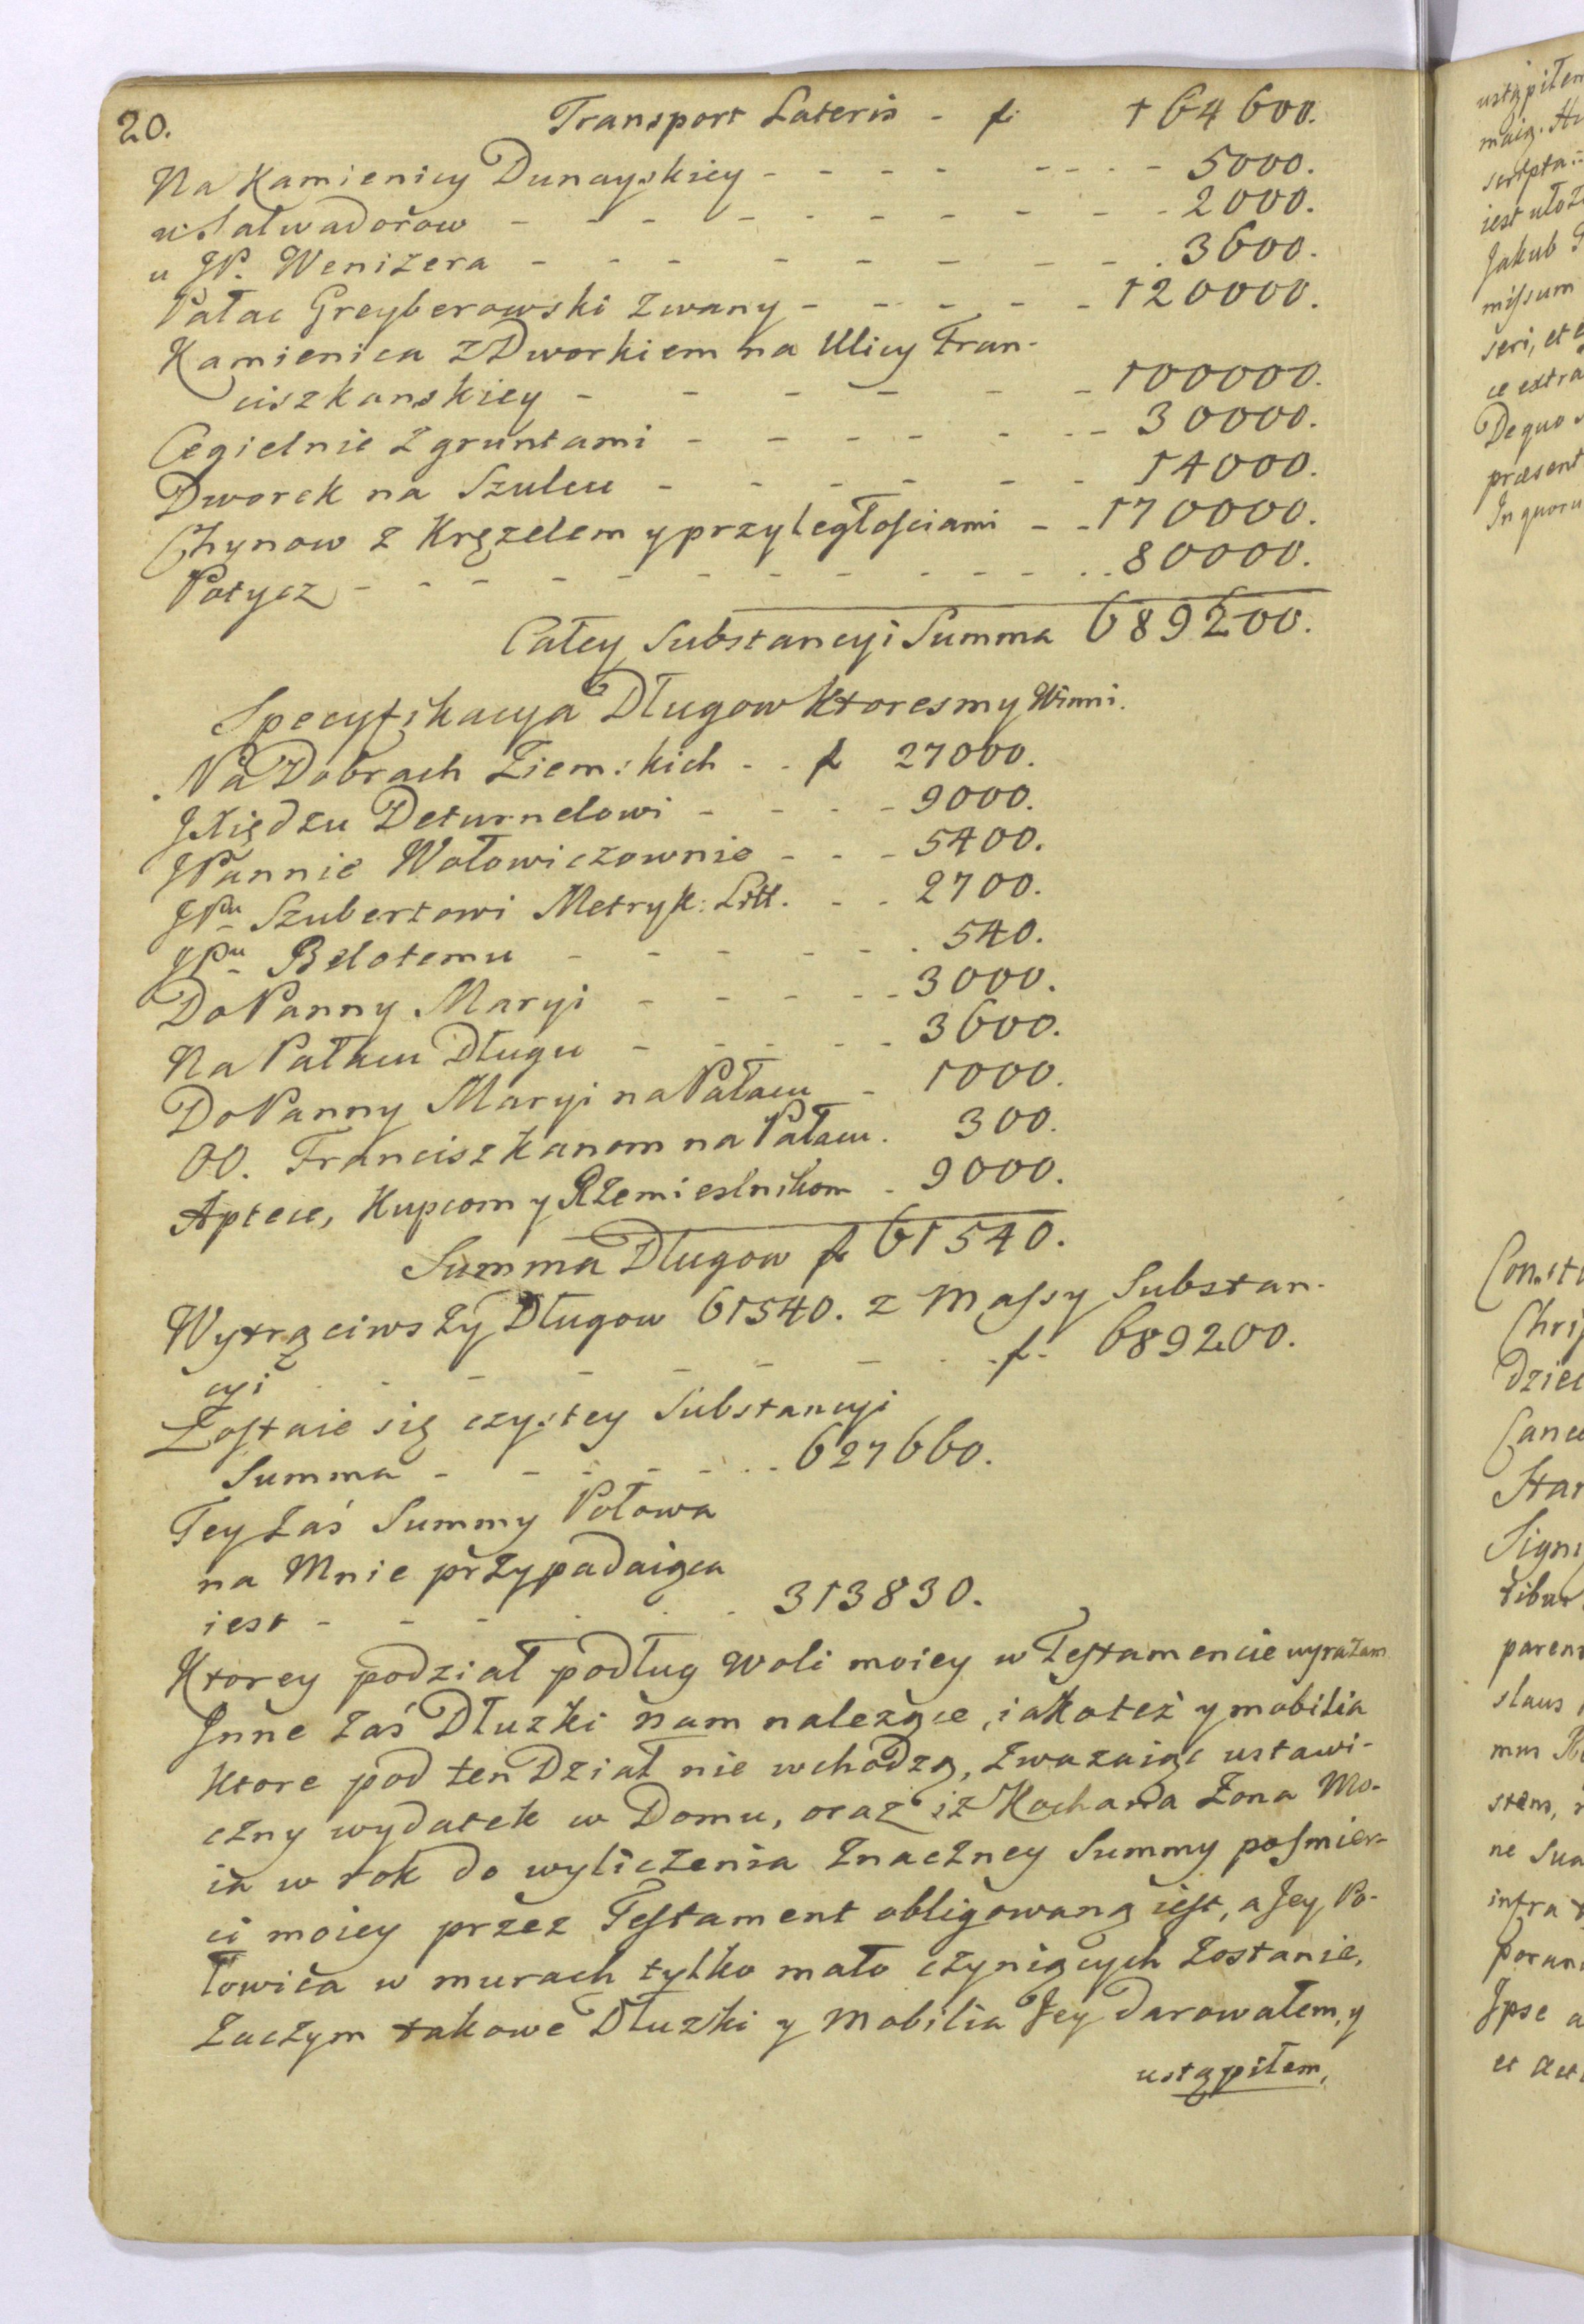 20. Transport Lateris - f. 164600.
Na Kamienicy Dunayskiey - - - - - - - - 5000.
u Salwadorow - - - - - - - - - - 2000.
u JP. Wenizera - - - - - - - - - 3600.
Pałac Greyberowski zwany - - - - - 120000.
Kamienica z Dworkiem na Ulicy Fran-
ciszkanskiey - - - - - - 100000.
Cegielnie z gruntami - - - - - - - 30000.
Dworek na Szulcu - - - - - - 14000.
Chynow z Kręzelem y przyległościami - - 170000.
Potycz - - - - - - - - - - - - 80000.
Całey Substancyi Summa 689200.
Specyfikacya Długow Ktoresmy Winni.
Na Dobrach Ziemskich - - f 27000.
JXiędzu Deturnelowi - - - - 9000.
JPannie Wołowiczownie - - - 5400.
JPu Szubertowi Metryk: Litt. - - 2700.
JPu Belotemu - - - - - - 540.
Do Panny Maryi - - - - - 3000.
Na Pałacu Długu - - - - - 3600.
Do Panny Maryi na Pałacu - 1000.
OO. Franciszkanom na Pałacu. 300.
Aptece, Kupcom y Rzemieslnikom - 9000.
Summa Długow f 61540.
Wytrąciwszy Długow 61540. z Massy Substan-
cyi - - - - - - - - f. 689200.
Zostaie się czystey Substancyi
Summa - - - - - - 627660.
Tey zaś Summy Połowa
na Mnie przypadaiąca
iest - - - - - - 313830.
Ktorey podział podług woli moiey w Testamencie wyrażam
Jnne zaś Dłużki nam należące, iako też y mobilia
Ktore pod ten Dział nie wchodzą, zważaiąc ustawi-
czny wydatek w Domu, oraz iż Kochana Żona Mo-
ia w rok do wyliczenia znaczney Summy po śmier-
ci moiey przez Testament obligowaną iest, a Jey Po-
łowica w murach tylko mało czyniących zostanie,
Zaczym takowe Dłużki y Mobilia Jey darowałem, y
ustąpiłem,
ustąpiłem
maią.
scripta
iest
Jakub
missum
seri, et
ce extra
De quo
præsent
Jn quoru
Const
Dziec
Signi
paren
slaus
stem,
ne sua
infra
Jpse a
et